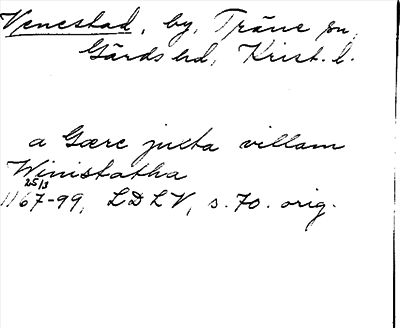 Venestad, by, Träne sn,
Gärds hd, Krist. l.
a Gærc juxta villam
Winistatha
25/3
1167-99, LDLV, s. 70. orig.